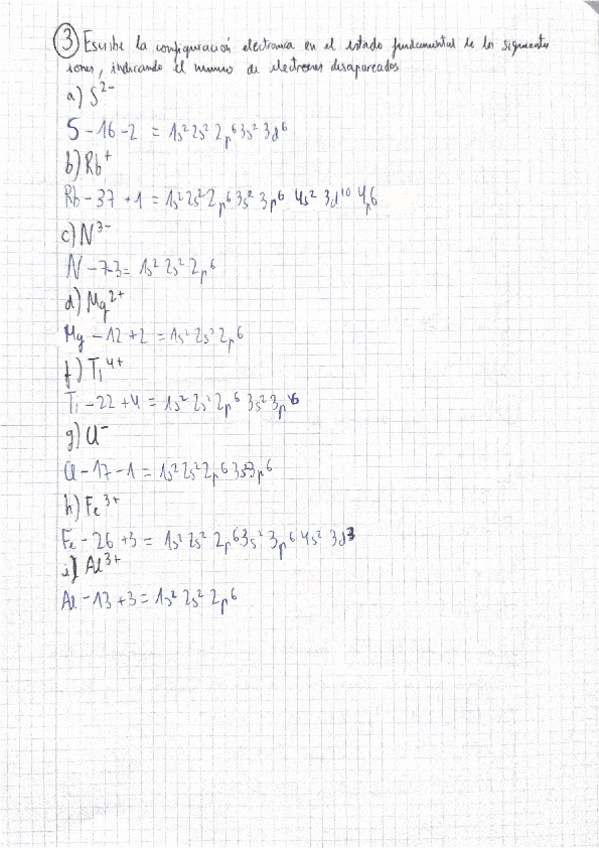 ③ Escribe la configuración electronica en el estado fundamental de los siguientes
iones, indicando el numero de electrones desapareados
a) S²⁻
S - 16 - 2 = 1s² 2s² 2p⁶ 3s² 3d⁶
b) Rb⁺
Rb - 37 + 1 = 1s² 2s² 2p⁶ 3s² 3p⁶ 4s² 3d¹⁰ 4p⁶
c) N³⁻
N - 7 - 3 = 1s² 2s² 2p⁶
d) Mg²⁺
Mg - 12 + 2 = 1s² 2s² 2p⁶
f) Ti⁴⁺
Ti - 22 + 4 = 1s² 2s² 2p⁶ 3s² 3p⁶
g) Cl⁻
Cl - 17 - 1 = 1s² 2s² 2p⁶ 3s² 3p⁶
h) Fe³⁺
Fe - 26 + 3 = 1s² 2s² 2p⁶ 3s² 3p⁶ 4s² 3d³
i) Al³⁺
Al - 13 + 3 = 1s² 2s² 2p⁶